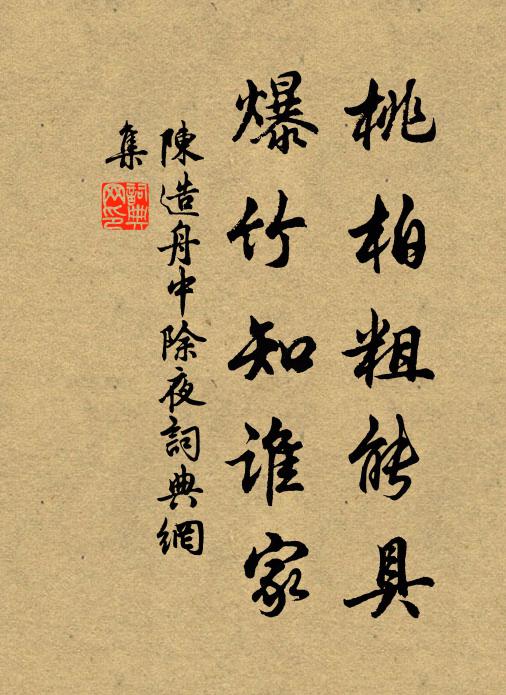 桃柏粗能具
爆竹知谁家
陳造舟中除夜詞典網
集
詞典
网印